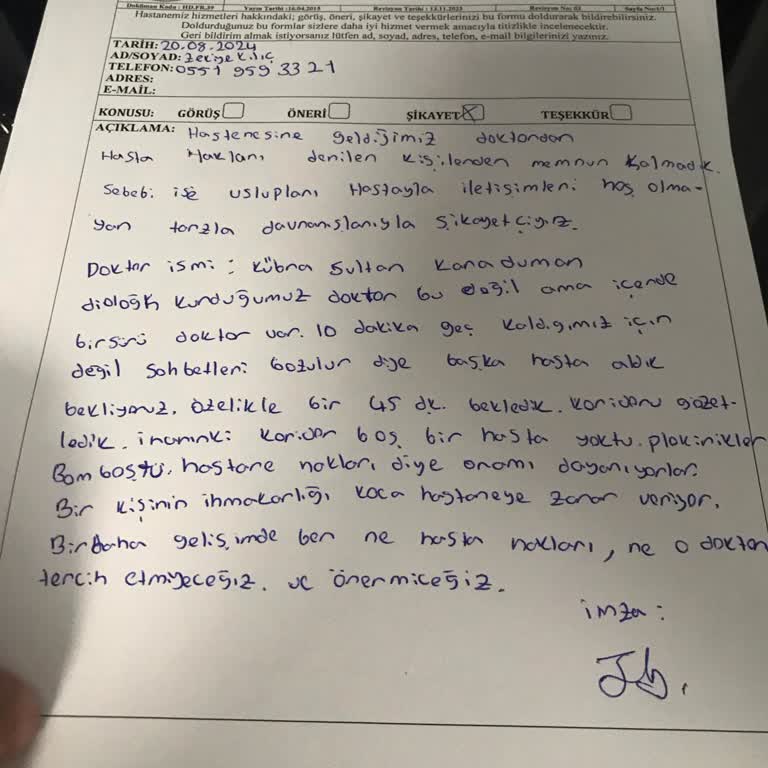 Doküman Kodu : HD.FR.59 Yayın Tarihi :16.04.2015 Revizyon Tarihi : 13.11.2023 Revizyon No: 03 Sayfa No:1/1
Hastanemiz hizmetleri hakkındaki; görüş, öneri, şikayet ve teşekkürlerinizi bu formu doldurarak bildirebilirsiniz.
Doldurduğunuz bu formlar sizlere daha iyi hizmet vermek amacıyla titizlikle incelenecektir.
Geri bildirim almak istiyorsanız lütfen ad, soyad, adres, telefon, e-mail bilgilerinizi yazınız.
TARİH: 20.08.2024
AD/SOYAD: Zekiye Kılıç
TELEFON: 0551 959 3321
ADRES:
E-MAİL:
KONUSU: GÖRÜŞ ÖNERİ ŞİKAYET TEŞEKKÜR
AÇIKLAMA: Hastenesine geldiğimiz doktordan
Hasta Hakları denilen kişilerden memnun kalmadık.
Sebebi ise uslupları Hastayla iletişimleri hoş olma-
yan tarzla davranışlarıyla şikayetçiyiz.
Doktor ismi : Kübra Sultan Karaduman
dioloğk kurduğumuz doktor bu değil ama içerde
birsürü doktor var. 10 dakika geç kaldığımız için
değil sohbetleri bozulur diye başka hasta aldık
bekliyoruz. özelikle bir 45 dk. bekledik. koridoru gözet-
ledik. inanınki koridor boş bir hasta yoktu. plokinikler
Bomboştu. hastane hakları diye onamı dayanıyorlar.
Bir kişinin ihmakarlığı koca hastaneye zarar veriyor.
Birdaha gelişimde ben ne hasta hakları, ne o doktor
tercih etmiyeceğiz. ve önermiceğiz.
imza: